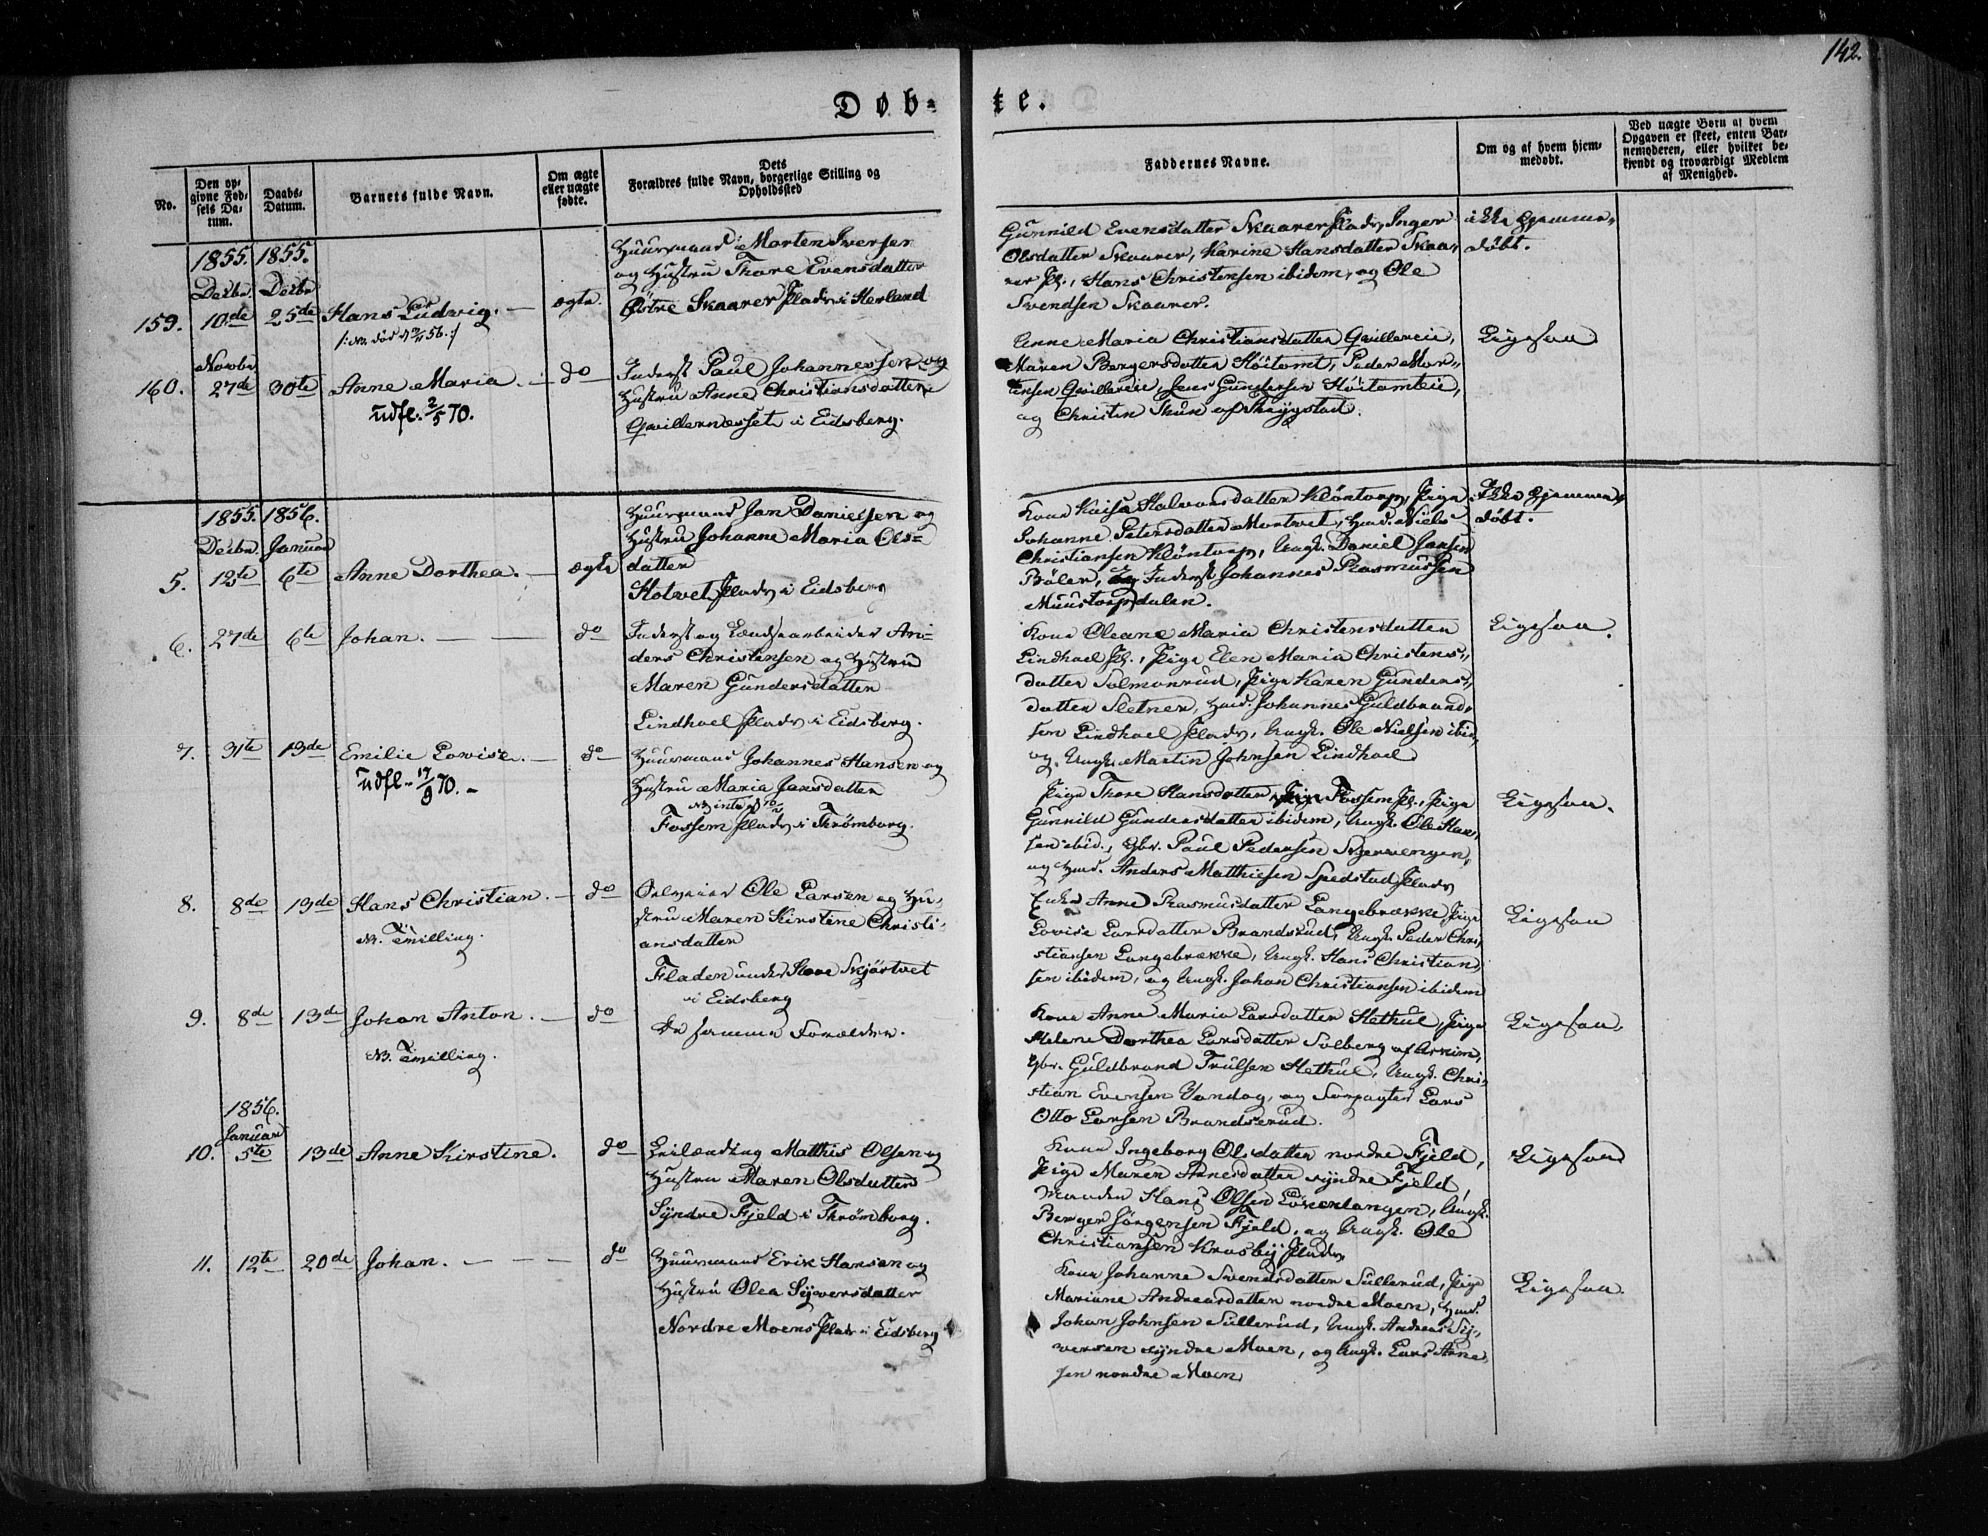 142.
Døb-
te.
No.
Den op-
givne Fød-
sels Da-
tum.
Daabs-
Datum.
Barnets fulde Navn.
Om ægte
eller uægte
fødte.
Dets
Forældres fulde Navn, borgerlige Stilling og
Opholdssted
Faddernes Navne.
Om og af hvem hjem-
medøbt.
Ved uægte Børn af hvem
Opgaven er skeet, enten Bar-
nemoderen, eller hvilket be-
kjendt og troværdigt Medlem
af Menighed.
1855. 1855.
Decbr. Decbr.
159. 10de 25de Hans Ludvig. — ægte.
Huusmand Morten Iversen
og Hustru Thore Evensdatter
Østre Skaarer Plads i Herland
Gunnild Evensdatter Skaarer Plads, Inger
Olsdatter Skaarer, Karine Hansdatter Skaa-
rer Pl., Hans Christensen ibidem, og Ole
Svendsen Skaarer.
ikke hjemme-
døbt.
Novbr.
160. 27de 30te Anne Maria. — do
udfl. 2/5 70.
Inderst Paul Johannessen og
Hustru Anne Christiansdatter
Qvillernesset i Eidsberg.
Anne Maria Christiansdatter Qvillereie,
Maren Bergersdatter Høitomt, Peder Mor-
tensen Qvillereie, Jens Gundersen Høitomteie,
og Christen Thune af Trygstad.
Ligesaa
1855. 1856.
Decbr. Januar
5. 12te 6te Anne Dorthea. — ægte
Huusmand Jan Danielsen og
Hustru Johanne Maria Ols-
datter
Holvet Plads i Eidsberg
Kone Kaisa Halvorsdatter Kløntorp, Pige
Johanne Petersdatter Mortvet, Hmd. Niels
Christiansen Kløntorp, Ungk. Daniel Jansen
Bøler, Inderst Johannes Rasmussen
Muustorpdalen.
Ikke hjemme-
døbt.
6. 27de 6te Johan. — — do
Inderst og Landsearbeider An-
ders Christensen og Hustru
Maren Gundersdatter
Lindhoel Plads i Eidsberg.
Kone Oleane Maria Christensdatter
Lindhoel Pl., Pige Elen Maria Christens-
datter Solmonrud, Pige Karen Gunders-
datter Sletner, Hmd. Johannes Guldbrand-
sen Lindhoel Plads, Ungk. Ole Nielsen ibid,
og Ungk. Martin Johnsen Lindhoel
Ligesaa.
7. 31te 13de Emilie Lovise. — do
udfl. 17/9 70. -
Huusmand Johannes Hansen og
Hustru Maria Jansdatter
Fossem Plads i Thrømborg.
Pige Thore Hansdatter Fossem Pl., Pige
Gunnild Gundersdatter ibidem, Ungk. Ole Han-
sen ibid., Gbr. Paul Pedersen Skjervengen,
og Hmd. Anders Matthiesen Spedstad Plads
Ligesaa.
8. 8de 13de Hans Christian. — do
NB. Tvilling.
Ole Larsen og Hu-
stru Maren Kirstine Christi-
ansdatter
Fladen under Store Skjørtvet
i Eidsberg
Enke Anne Rasmusdatter Langebrække, Pige
Lovise Larsdatter Brandsrud, Ungk. Peder Chri-
stiansen Langebrække, Ungk. Hans Christian-
sen ibidem, og Ungk. Johan Christiansen ibidem
Ligesaa
9. 8de 13de Johan Anton. — do
NB. Tvilling.
De samme Forældre.
Kone Anne Maria Larsdatter Hethul, Pige
Helene Dorthea Larsdatter Solberg af Askim,
Gbr. Guldbrand Trulsen Hethul, Ungk. Chri-
stian Evensen Vandog, og Forpagter Lars
Otto Larsen Brandsrud.
Ligesaa.
1856.
Januar
10. 5te 13de Anne Kirstine. do
Leilænding Matthis Olsen og
Hustru Maren Olsdatter
Syndre Fjeld i Thrømborg.
Kone Ingeborg Olsdatter nordre Fjeld,
Pige Maren Arnesdatter syndre Fjeld,
Manden Hans Olsen Løverlangen, Ungk.
Berger Jørgensen Fjeld, og Ungk. Ole
Christiansen Krosby Plads
Ligesaa
11. 12te 20de Johan. — — — do
Huusmand Erik Hansen og
Hustru Olea Syversdatter
Nordre Moens Plads i Eidsberg
Kone Johanne Svendsdatter Sullerud, Pige
Mariane Andreasdatter nordre Moen, Hmd.
Johan Johnsen Sullerud, Ungk. Andreas Sy-
versen syndre Moen, og Ungk. Lars Arne-
sen nordre Moen
Ligesaa.